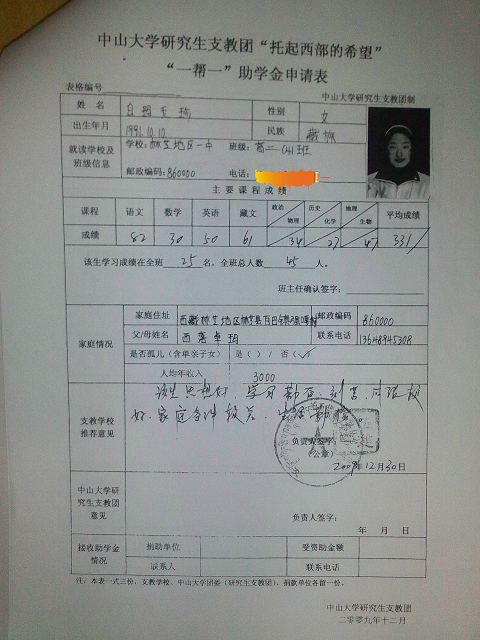 中山大学研究生支教团“托起西部的希望”
“一帮一”助学金申请表
表格编号
中山大学研究生支教团制
姓 名 白玛玉珍 性别 女
出生年月 1991.10.10. 民族 藏族
就读学校及班级信息 学校:林芝地区一中 班级:高二(4)班
邮政编码:860000 电话:
主 要 课 程 成 绩
课程 语文 数学 英语 藏文 政治 物理 历史 化学 地理 生物 平均成绩
成绩 82 30 50 61 34 27 47 331
该生学习成绩在全班 25 名,全班总人数 45 人。
班主任确认签字:
家庭情况
家庭住址 西藏林芝地区林芝县百巴镇 邮政编码 860000
父/母姓名 西洛卓玛 联系电话 13648945308
是否孤儿(含单亲子女) 是( ) 否(✓)
人均年收入 3000
支教学校推荐意见
该生思想好,学习勤奋、刻苦,
好。家庭条件较差,
负责人签字:
(公章)
2009年12月30日
中山大学研究生支教团意见
负责人签字:
年 月 日
接收助学金情况 捐助单位 受资助金额
联系人 联系电话
注:本表一式三份,支教学校、中山大学团委(研究生支教团)、捐款单位各留一份。
中山大学研究生支教团
二零零九年十二月